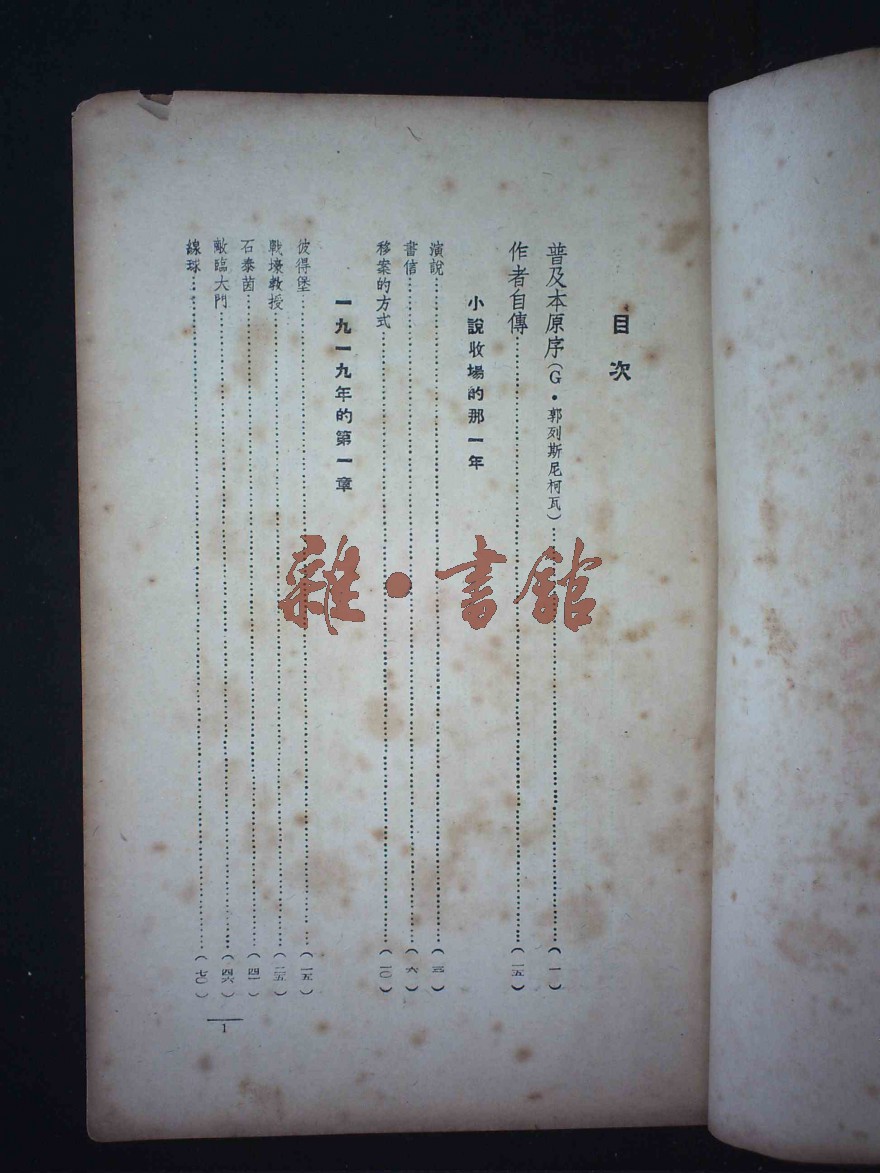 目次
普及本原序(G·郭列斯尼柯瓦)……(一)
作者自傳……(一五)
小說收場的那一年
演說……(三)
書信……(六)
移案的方式……(一〇)
一九一九年的第一章
彼得堡……(一五)
戰壕教授……(二五)
石泰茵……(四一)
敵臨大門……(四六)
線球……(七〇)
1
雜·書館